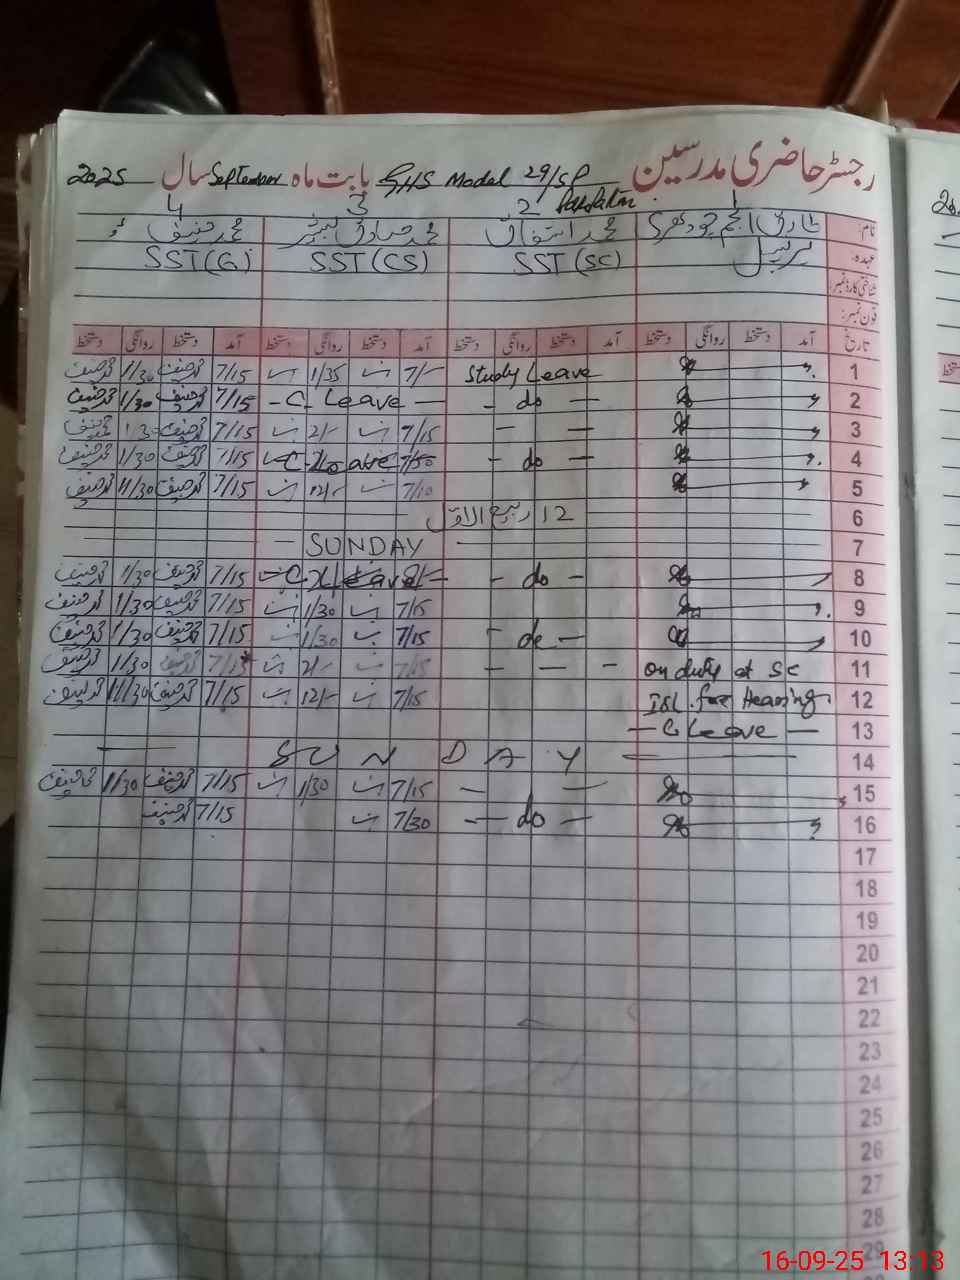 رجسٹر حاضری مدرسین GHS Model 29/SP بابت ماہ September سال 2025
1 2 3 4
نام: طارق انجم چودھری محمد اشفاق محمد صادق محمد حنیف
عہدہ: پرنسپل SST (SC) SST (CS) SST (G)
شناختی کارڈ نمبر:
فون نمبر:
تاریخ آمد دستخط روانگی دستخط آمد دستخط روانگی دستخط آمد دستخط روانگی دستخط آمد دستخط روانگی دستخط
1 Study Leave 7/- 1/35 7/15 محمد حنیف 1/30 محمد حنیف
2 - do - - C. Leave - 7/15 محمد حنیف 1/30 محمد حنیف
3 - - 7/15 2/- 7/15 محمد حنیف 1/30 محمد حنیف
4 - do - 7/15 محمد حنیف 1/30 محمد حنیف
5 7/10 12/- 7/15 محمد حنیف 11/30 محمد حنیف
6 12 ربیع الاوّل
7 SUNDAY
8 - do - 7/15 محمد حنیف 1/30 محمد حنیف
9 7/15 1/30 7/15 محمد حنیف 1/30 محمد حنیف
10 - do - 7/15 1/30 7/15 محمد حنیف 1/30 محمد حنیف
11 on duty at SC - - - 7/15 2/- 7/15 محمد حنیف 1/30 محمد حنیف
12 Isl. for Hearing 7/15 12/- 7/15 محمد حنیف 11/30 محمد حنیف
13 - C Leave -
14 SUNDAY
15 - - 7/15 1/30 7/15 محمد حنیف 1/30 محمد حنیف
16 - do - 7/30 7/15 محمد حنیف
17
18
19
20
21
22
23
24
25
26
27
28
29
16-09-25 13:13